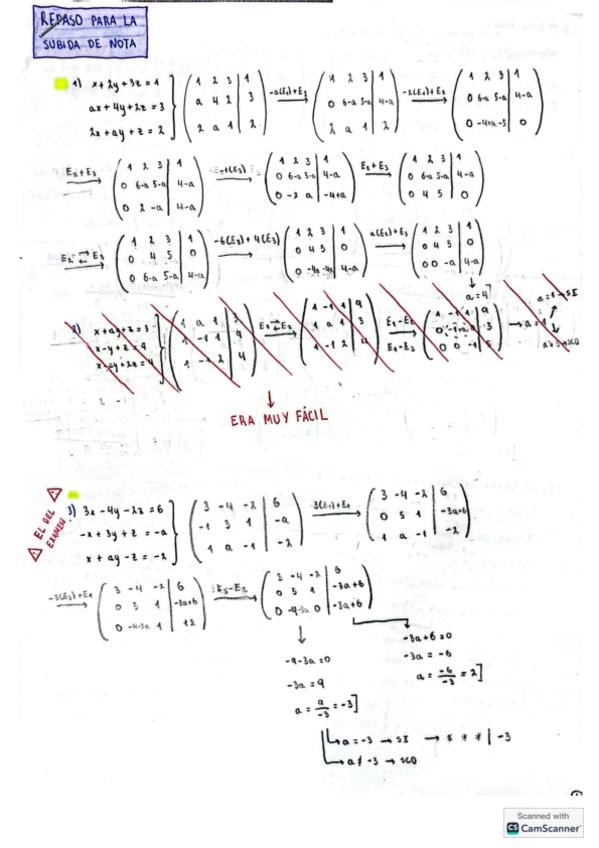 REPASO PARA LA
SUBIDA DE NOTA
1) x+2y+3z=1
ax+4y+2z=3
2x+ay+z=2
1 2 3 | 1
a 4 2 | 3
2 a 1 | 2
-a(E1)+E2
1 2 3 | 1
0 6-a 5-a | 4-a
2 a 1 | 2
-2(E1)+E3
1 2 3 | 1
0 6-a 5-a | 4-a
0 -4+a -5 | 0
E2+E3
1 2 3 | 1
0 6-a 5-a | 4-a
0 2 -a | 4-a
1 2 3 | 1
0 6-a 5-a | 4-a
0 -2 a | -4+a
E2+E3
1 2 3 | 1
0 6-a 5-a | 4-a
0 4 5 | 0
E2 ⇄ E3
1 2 3 | 1
0 4 5 | 0
0 6-a 5-a | 4-a
-6(E2)+4(E3)
1 2 3 | 1
0 4 5 | 0
0 | 4-a
a(E2)+E3
1 2 3 | 1
0 4 5 | 0
0 0 -a | 4-a
a=4
2) x+ay+z=3
x-y+z=9
x-ay+2z=4
1 a 1 | 3
1 -1 1 | 9
1 2 | 4
1 -1 1 | 9
1 a 1 | 3
1 -1 2 |
E1-E2
E1-E3
ERA MUY FÁCIL
EL DEL EXAMEN
3) 3x-4y-2z=6
-x+3y+z=-a
x+ay-z=-2
3 -4 -2 | 6
-1 3 1 | -a
1 a -1 | -2
3(E2)+E1
3 -4 -2 | 6
0 5 1 | -3a+6
1 a -1 | -2
-3(E3)+E1
3 -4 -2 | 6
0 5 1 | -3a+6
0 -4-3a 1 | 12
E3-E2
3 -4 -2 | 6
0 5 1 | -3a+6
0 -4-3a 0 | -3a+6
-9-3a=0
-3a=9
a=9/-3=-3]
-3a+6=0
-3a=-6
a=-6/-3=2]
a=-3 → SI → * * * | -3
a≠-3 → SCD
Scanned with
CS CamScanner